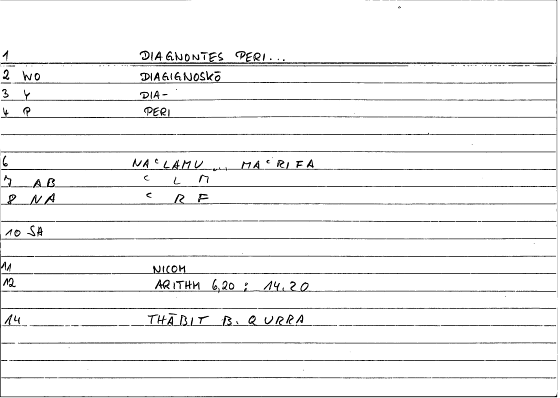 1 DIAGNONTES PERI...
2 WO DIAGIGNOSKŌ
3 Y DIA-
4 P PERI
6 NAʿLAMU ... MAʿRIFA
7 AB ʿ L M
8 NA ʿ R F
10 SA
11 NICOM
12 ARITHM 6,20 : 14.20
14 THĀBIT B. QURRA